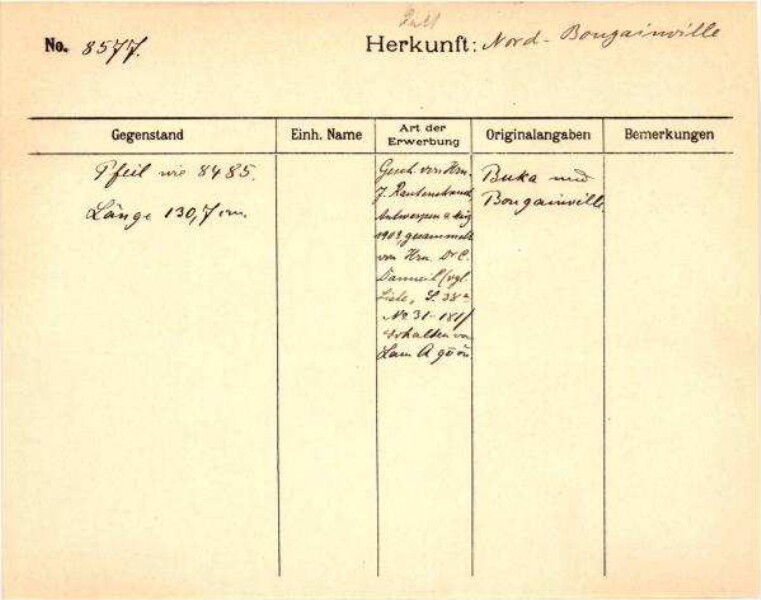 No. 8577. Herkunft: Nord-Bougainville
Gegenstand Einh. Name Art der Erwerbung Originalangaben Bemerkungen
Pfeil wie 8485.
Länge 130,7 cm.
Gesch. von Hrn.
J. Rautenstrauch
Antwerpen
gesammelt
von Hrn. Dr C.
Danneil (vgl.
Liste, S. 38a
No 31-181)
Erhalten von
Buka und
Bougainville.